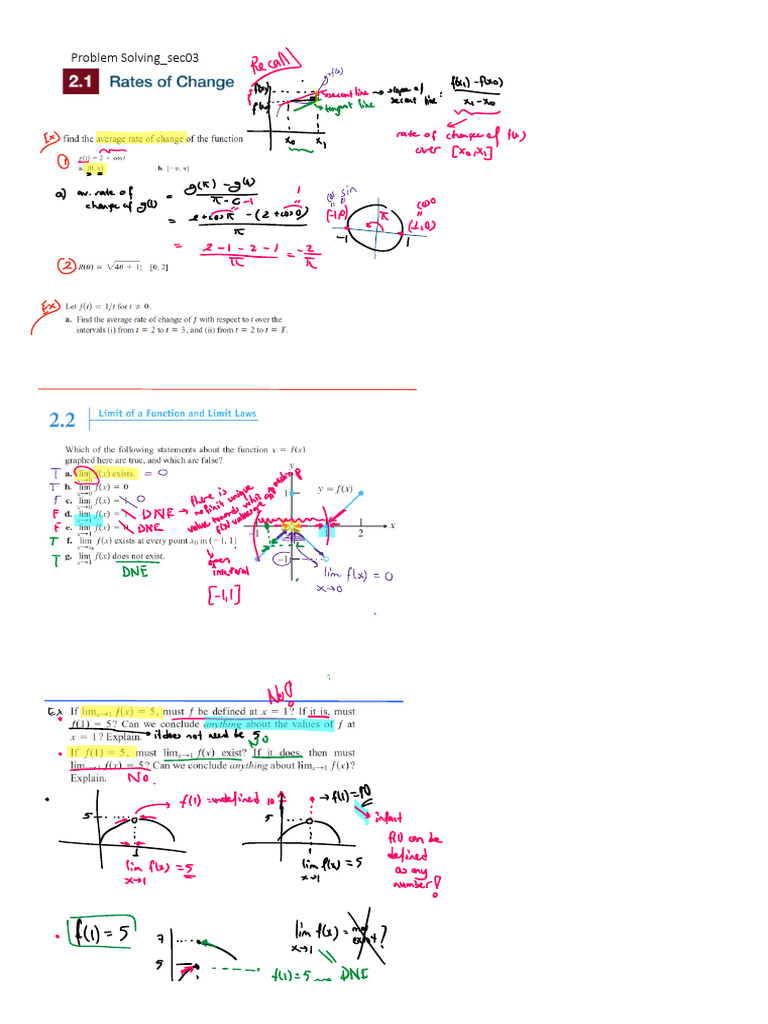 Problem Solving_sec03
2.1 Rates of Change
Recall
y=f(x)
f(x₁)
f(x₀)
secant line → slope of secant line: f(x₁) - f(x₀) / x₁ - x₀
tangent line
x₀ x₁
rate of change of f(x)
over [x₀, x₁]
Ex find the average rate of change of the function
① g(t) = 2 + cos t
a. [0, π] b. [−π, π]
a) av. rate of change of g(t) = g(π) - g(0) / π - 0
-1 1
= 2 + cos π - (2 + cos 0) / π
= 2 - 1 - 2 - 1 / π = -2 / π
cos sin
(-1,0)
π
cos 0
(1,0)
-1 1
② R(θ) = √4θ + 1; [0, 2]
Ex Let f(t) = 1/t for t ≠ 0.
a. Find the average rate of change of f with respect to t over the
intervals (i) from t = 2 to t = 3, and (ii) from t = 2 to t = T.
2.2 Limit of a Function and Limit Laws
Which of the following statements about the function y = f(x)
graphed here are true, and which are false?
T a. lim x→0 f(x) exists. = 0
T b. lim x→0 f(x) = 0
F c. lim x→0 f(x) = 1 0
F d. lim x→1 f(x) = 1 DNE → there is no finite unique value towards which f(x) values are approaching
F e. lim x→1 f(x) = 0 DNE
T f. lim x→x₀ f(x) exists at every point x₀ in (−1, 1)
T g. lim x→1 f(x) does not exist.
DNE
open interval
[-1,1]
y
y = f(x)
1
-1 1 2 x
-1
lim f(x) = 0
x→0
No!
Ex If limx→1 f(x) = 5, must f be defined at x = 1? If it is, must
f(1) = 5? Can we conclude anything about the values of f at
x = 1? Explain. it does not need be 5 No
If f(1) = 5, must limx→1 f(x) exist? If it does, then must
limx→1 f(x) = 5? Can we conclude anything about limx→1 f(x)?
Explain. No
5
f(1) = undefined
1
lim f(x) = 5
x→1
10
5
→ f(1) = 10
lim f(x) = 5
x→1
infact
f(1) can be
defined
as any
number!
f(1) = 5
7
5
lim f(x) = not exist ?
x→1
f(1) = 5 DNE